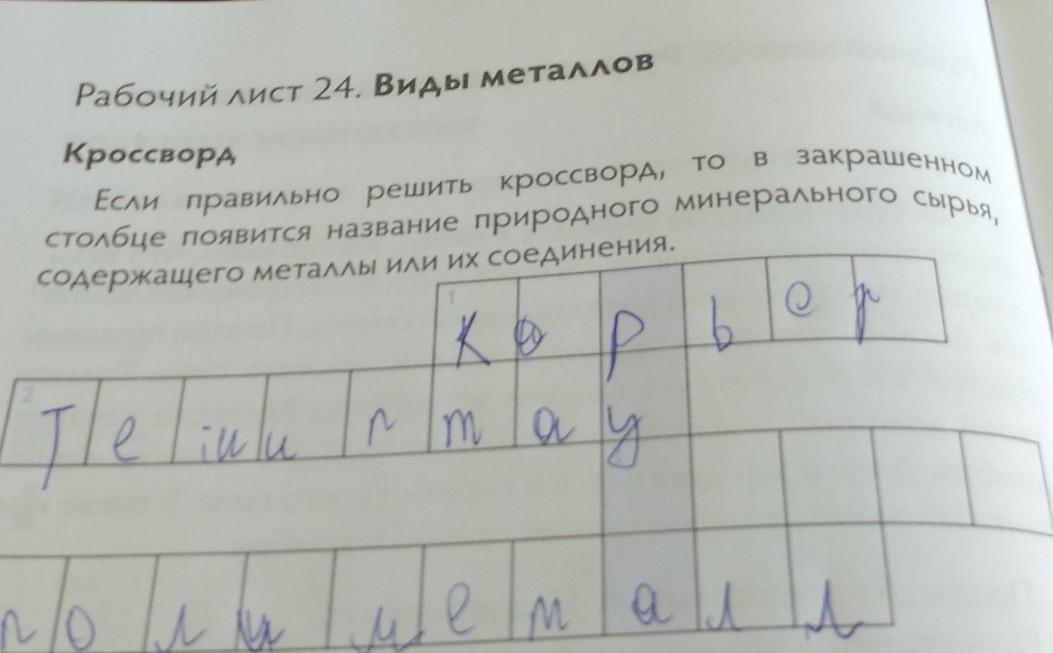 Рабочий лист 24. Виды металлов
Кроссворд
Если правильно решить кроссворд, то в закрашенном
столбце появится название природного минерального сырья,
содержащего металлы или их соединения.
1 Карьер
2 Темиртау
полиметалл